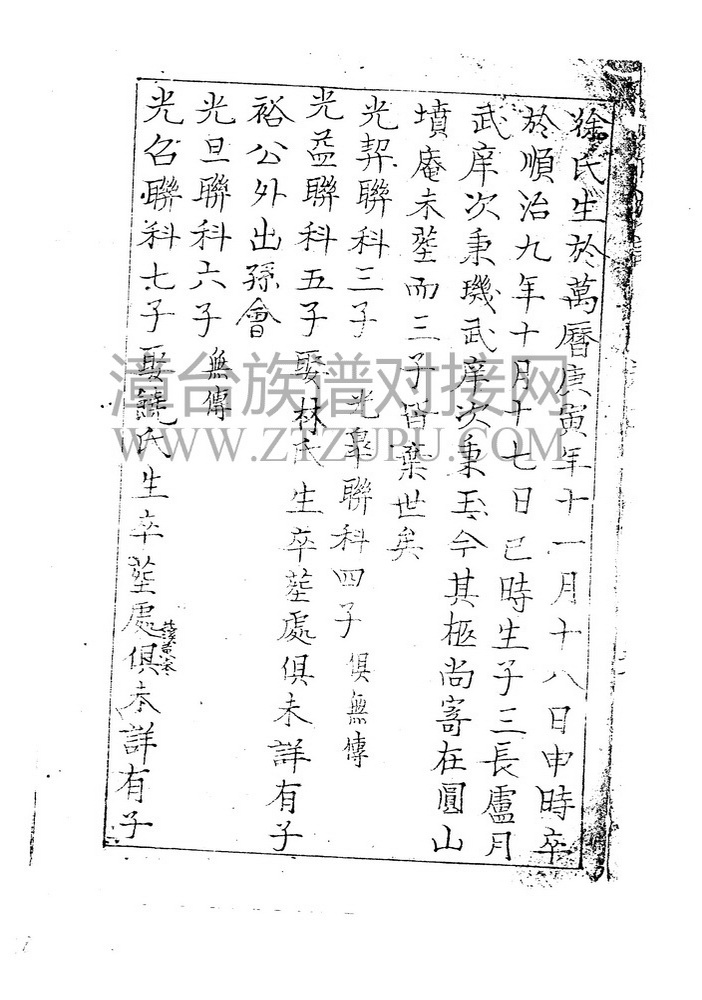 徐氏生於萬曆庚寅年十一月十八日申時卒
於順治九年十月十七日巳時生子三長盧月
武庠次秉璣武庠次秉玉今其柩尚寄在圓山
墳庵未塟而三子皆棄世矣
光契聯科三子 光皋聯科四子 俱無傳
光益聯科五子娶林氏生卒塟處俱未詳有子
裕公外出孫會
光旦聯科六子無傳
光召聯科七子娶饒氏生卒塟處俱未詳有子
漳台族谱对接网
WWW.ZTZUPU.COM